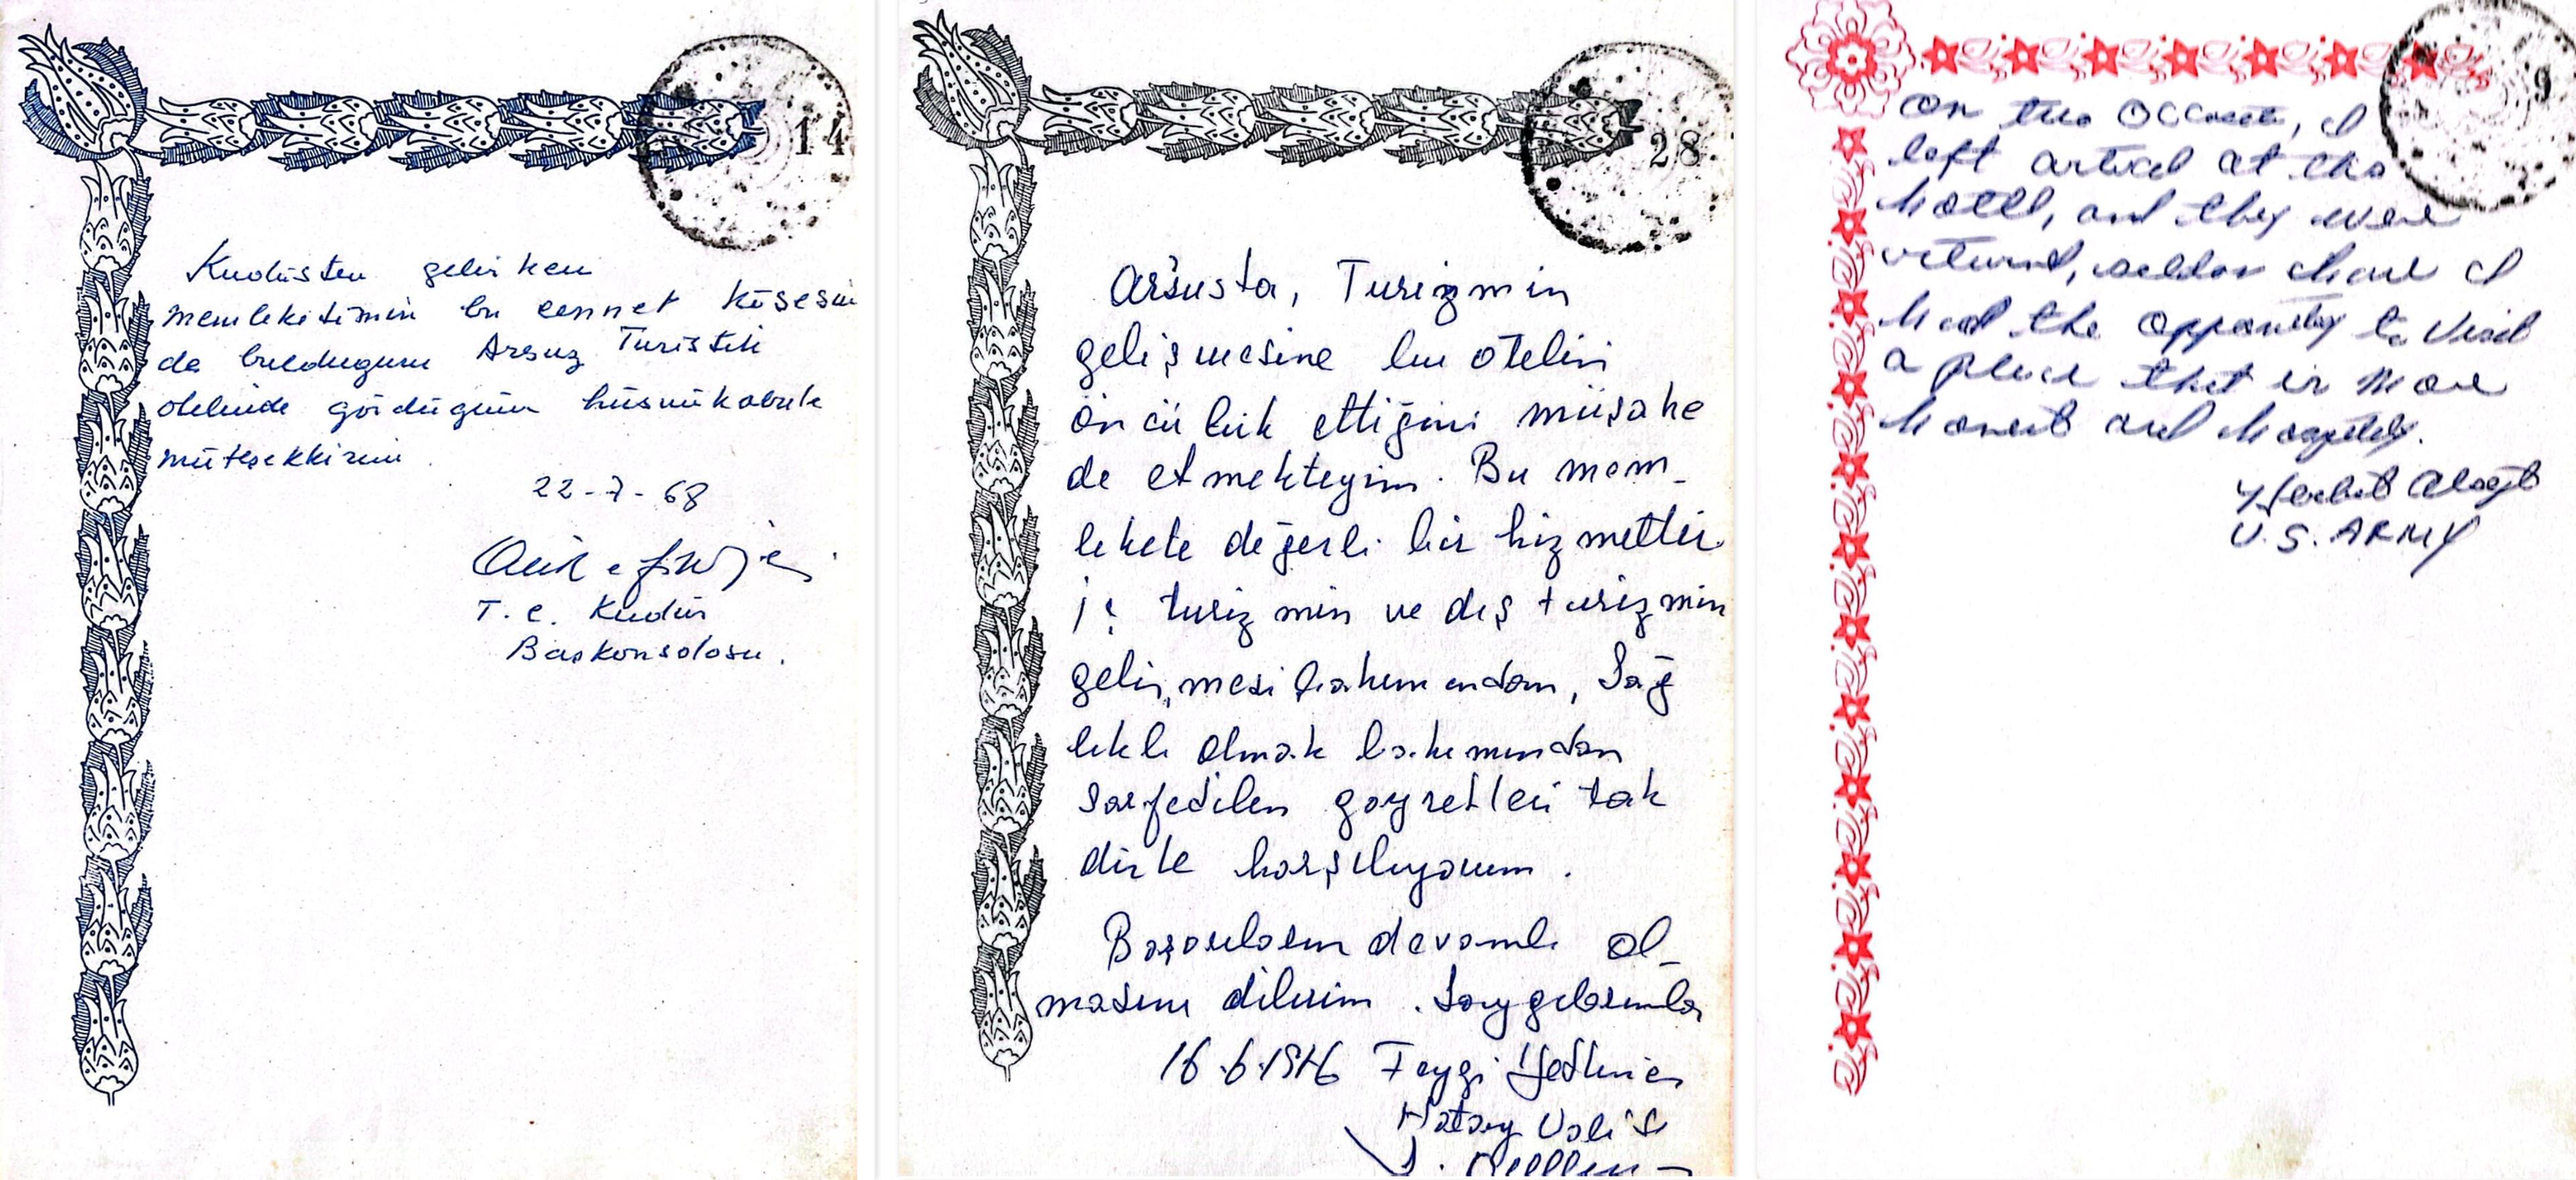 14
Kudüsten gelirken
memleketimin bu cennet köşesin
de bulduğum Arsuz Turistik
otelinde gördüğüm hüsnükabule
müteşekkirim
22-7-68
T. C. Kudüs
Başkonsolosu.
28
Arsusta, Turizmin
gelişmesine bu otelin
öncülük ettiğini müşahe
de etmekteyim. Bu mem-
lekete değerli bir hizmettir
iç turizmin ve dış turizmin
gelişmesi bakımından, Sağ
lıklı olmak bakımından
sarfedilen gayretleri tak
dirle karşılıyorum.
Başarıların devamlı ol-
masını dilerim. Saygılarımla
16.6.1976 Feyzi
Hatay Valisi
9
On two , I
left at the
hotel, and they were
returned, seldom have I
had the to visit
a place that is more
honest and
U.S. ARMY